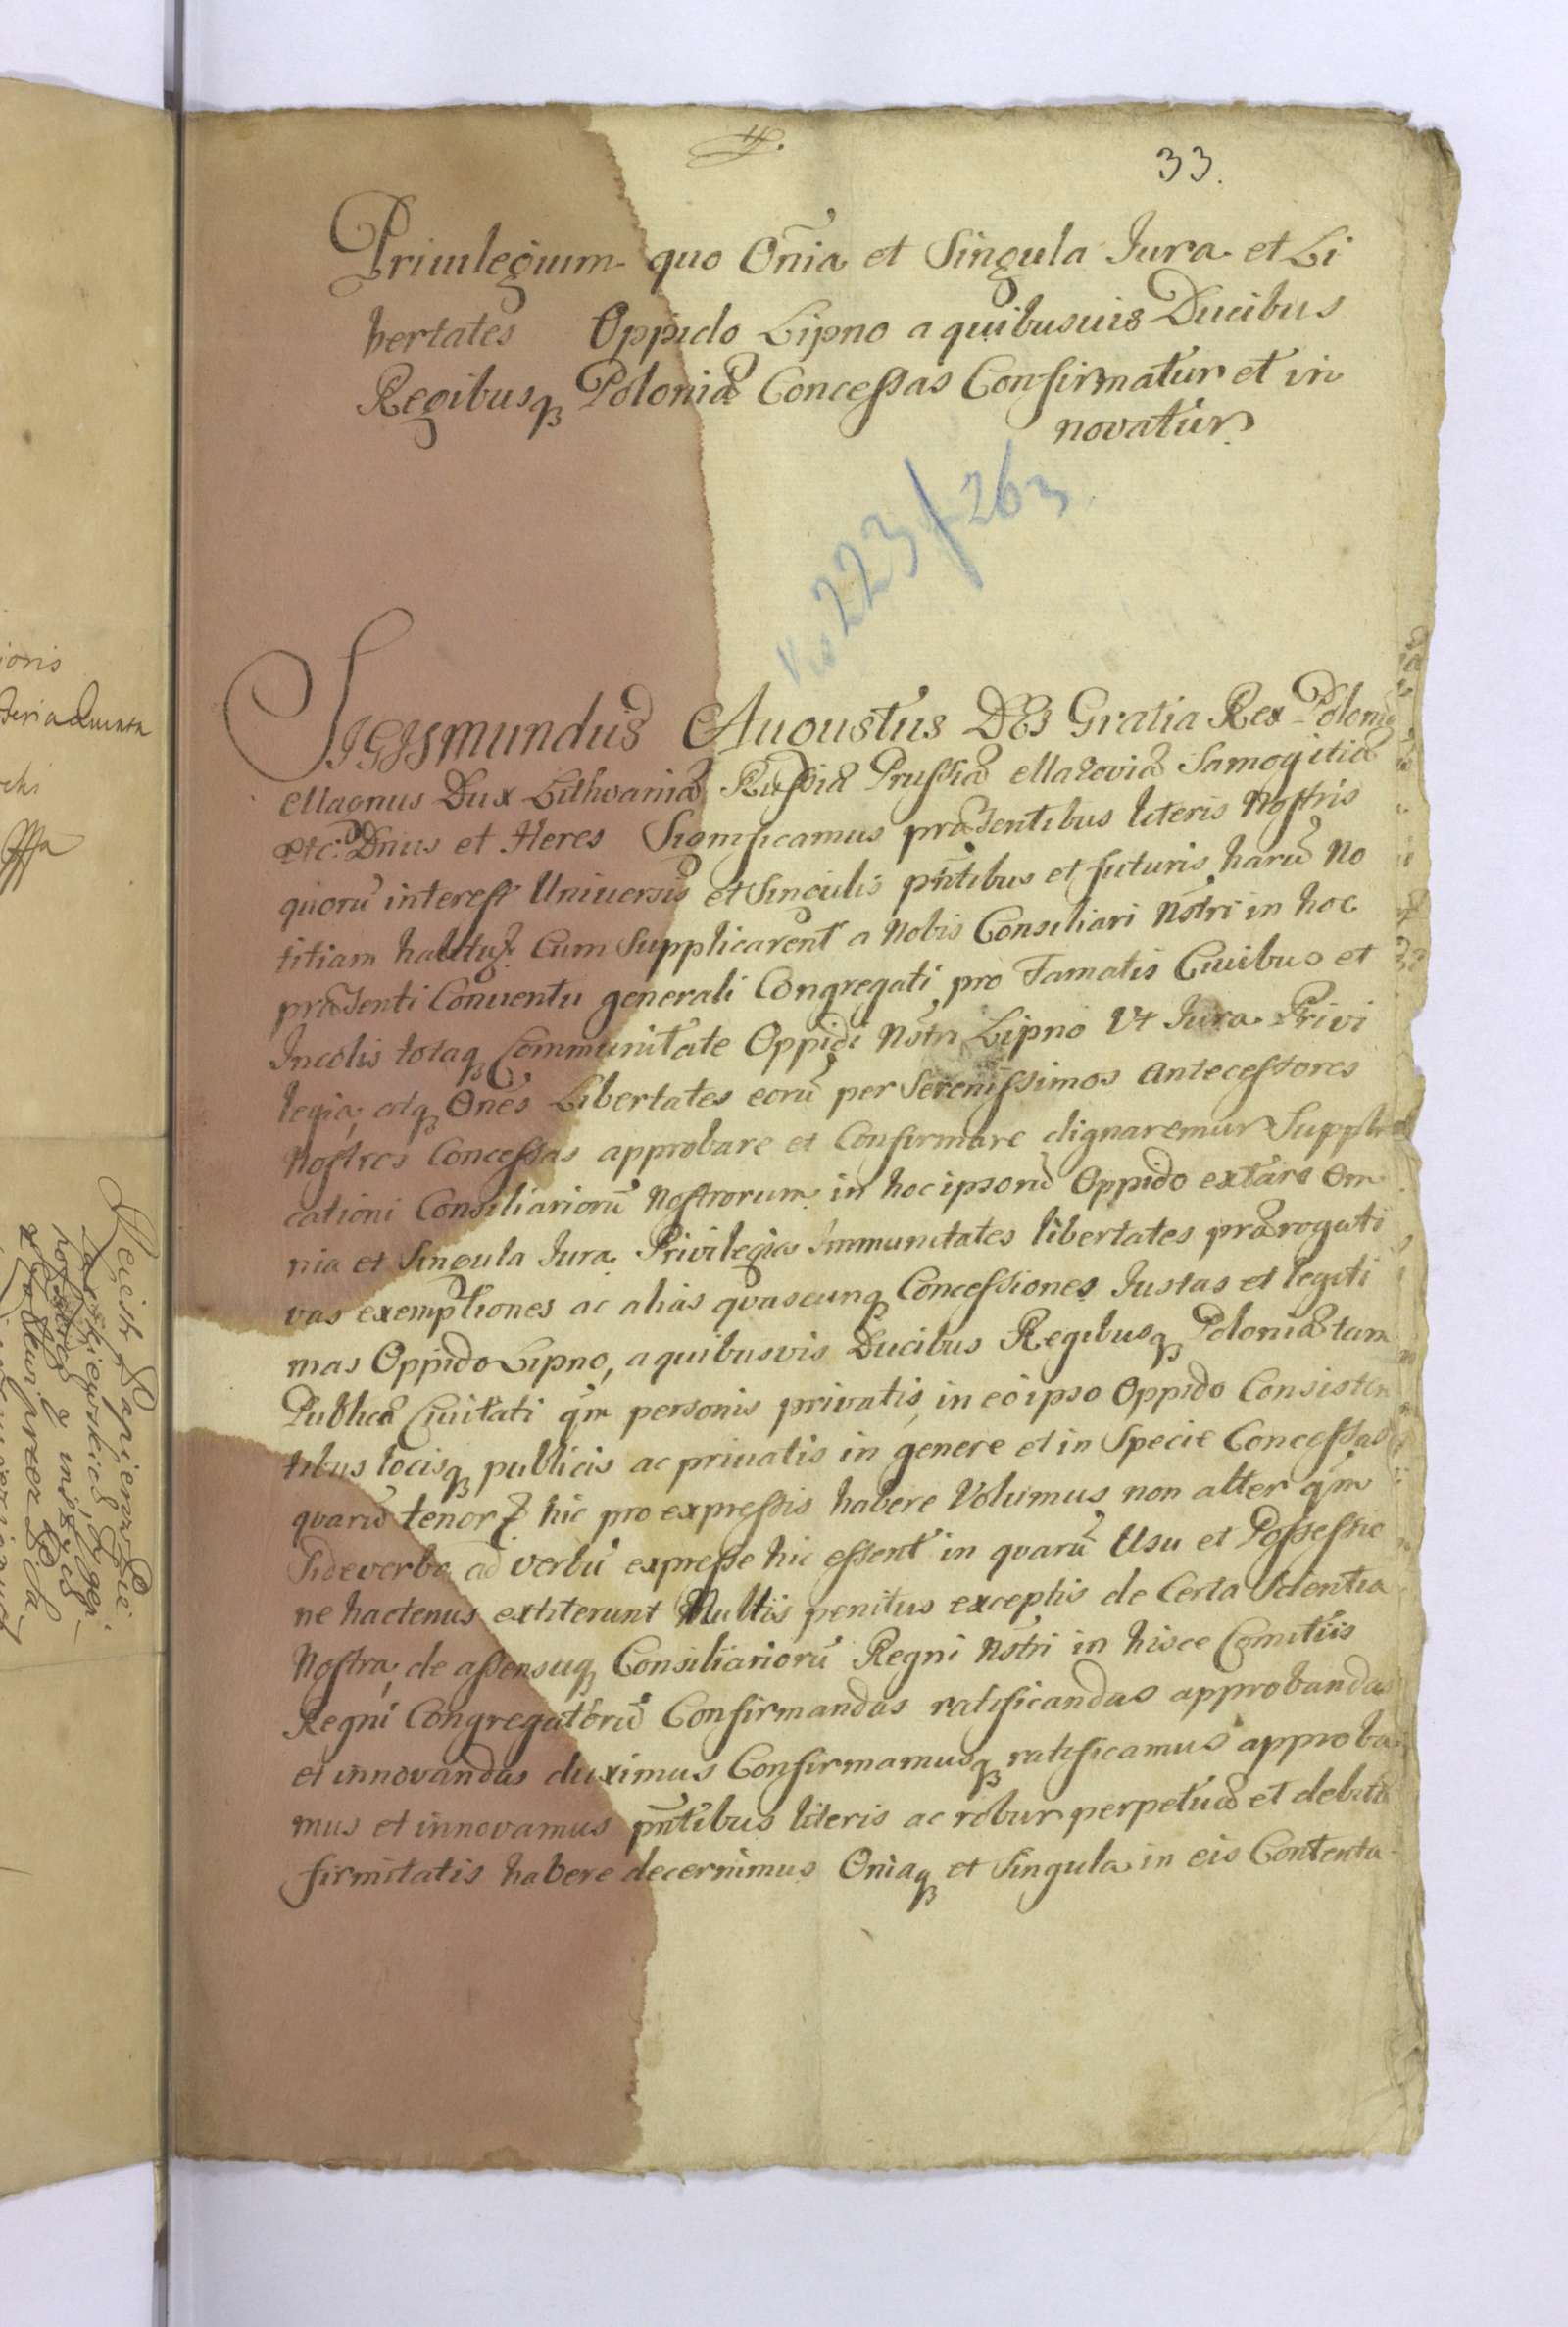 33.
Priuilegium quo Oñia et Singula Jura et Li
bertates Oppido Lipno a quibusuis Ducibus
Regibusq Poloniæ Concessas Confirmatur et in
novatur
223 f 263
Sigismundus Augustus DEI Gratia Rex Poloniæ
Magnus Dux Lithvaniæ Russiæ Prussiæ Mazoviæ Samogitiæ
etc: Dnus et Heres Significamus præsentibus literis Nostris
quorū interest Uniuersis et Singulis pñtibus et futuris harū no
titiam Cum Supplicarent a Nobis Consiliari Nostri in hoc
præsenti Conventu generali Congregati pro Famatis Civibus et
Incolis totaq Communitate Oppidi Nostri Lipno Vt Jura Privi
legia, atq Ones Libertates eorū per Serenissimos Antecessores
Nostros Concessas approbare et Confirmare dignaremur Suppli
cationi Consiliariorū Nostrorum in hoc ipsorū Oppido extare Om
nia et Singula Jura Privilegia Immunitates libertates prærogati
vas exemptiones ac alias quascunq Concessiones Justas et legiti
mas Oppido Lipno, a quibusvis Ducibus Regibusq Poloniæ tam
Publicæ Civitati qm personis privatis, in eo ipso Oppido Consisten
tibus locisq publicis ac priuatis in genere et in Specie Concessas
quarū hic pro expressis habere Volumus non alter qm
Si de verbo ad verbū expresse hic essent in quarū Usu et Possessio
ne hactenus extiterunt Nullis penitus exceptis de Certa Scientia
Nostra, de assensuq Consiliariorū Regni Nostri in hisce Comitiis
Regni Congregatorū Confirmandas ratificandas approbandas
et innovandas duximus Confirmamusq ratificamus approba
mus et innovamus pñtibus literis ac robur perpetuæ et debitæ
firmitatis habere decernimus Oniaq et Singula in eis Contenta